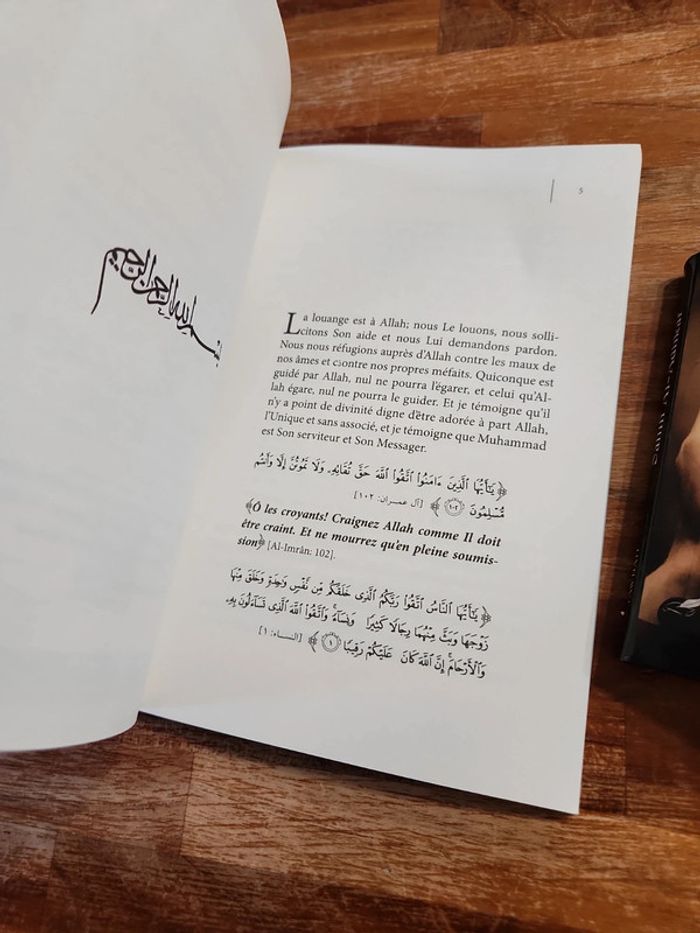 بسم الله الرحمن الرحيم
5
La louange est à Allah; nous Le louons, nous solli-
citons Son aide et nous Lui demandons pardon.
Nous nous réfugions auprès d'Allah contre les maux de
nos âmes et contre nos propres méfaits. Quiconque est
guidé par Allah, nul ne pourra l'égarer, et celui qu'Al-
lah égare, nul ne pourra le guider. Et je témoigne qu'il
n'y a point de divinité digne d'être adorée à part Allah,
l'Unique et sans associé, et je témoigne que Muhammad
est Son serviteur et Son Messager.
﴿يَـٰٓأَيُّهَا ٱلَّذِينَ ءَامَنُوا۟ ٱتَّقُوا۟ ٱللَّهَ حَقَّ تُقَاتِهِۦ وَلَا تَمُوتُنَّ إِلَّا وَأَنتُم
مُّسْلِمُونَ ١٠٢﴾ [آل عمران: ١٠٢]
﴾Ô les croyants! Craignez Allah comme Il doit
être craint. Et ne mourrez qu'en pleine soumis-
sion﴿ [Al-Imrân: 102].
﴿يَـٰٓأَيُّهَا ٱلنَّاسُ ٱتَّقُوا۟ رَبَّكُمُ ٱلَّذِى خَلَقَكُم مِّن نَّفْسٍ وَٰحِدَةٍ وَخَلَقَ مِنْهَا
زَوْجَهَا وَبَثَّ مِنْهُمَا رِجَالًا كَثِيرًا وَنِسَآءً ۚ وَٱتَّقُوا۟ ٱللَّهَ ٱلَّذِى تَسَآءَلُونَ بِهِۦ
وَٱلْأَرْحَامَ ۚ إِنَّ ٱللَّهَ كَانَ عَلَيْكُمْ رَقِيبًا ١﴾ [النساء: ١]